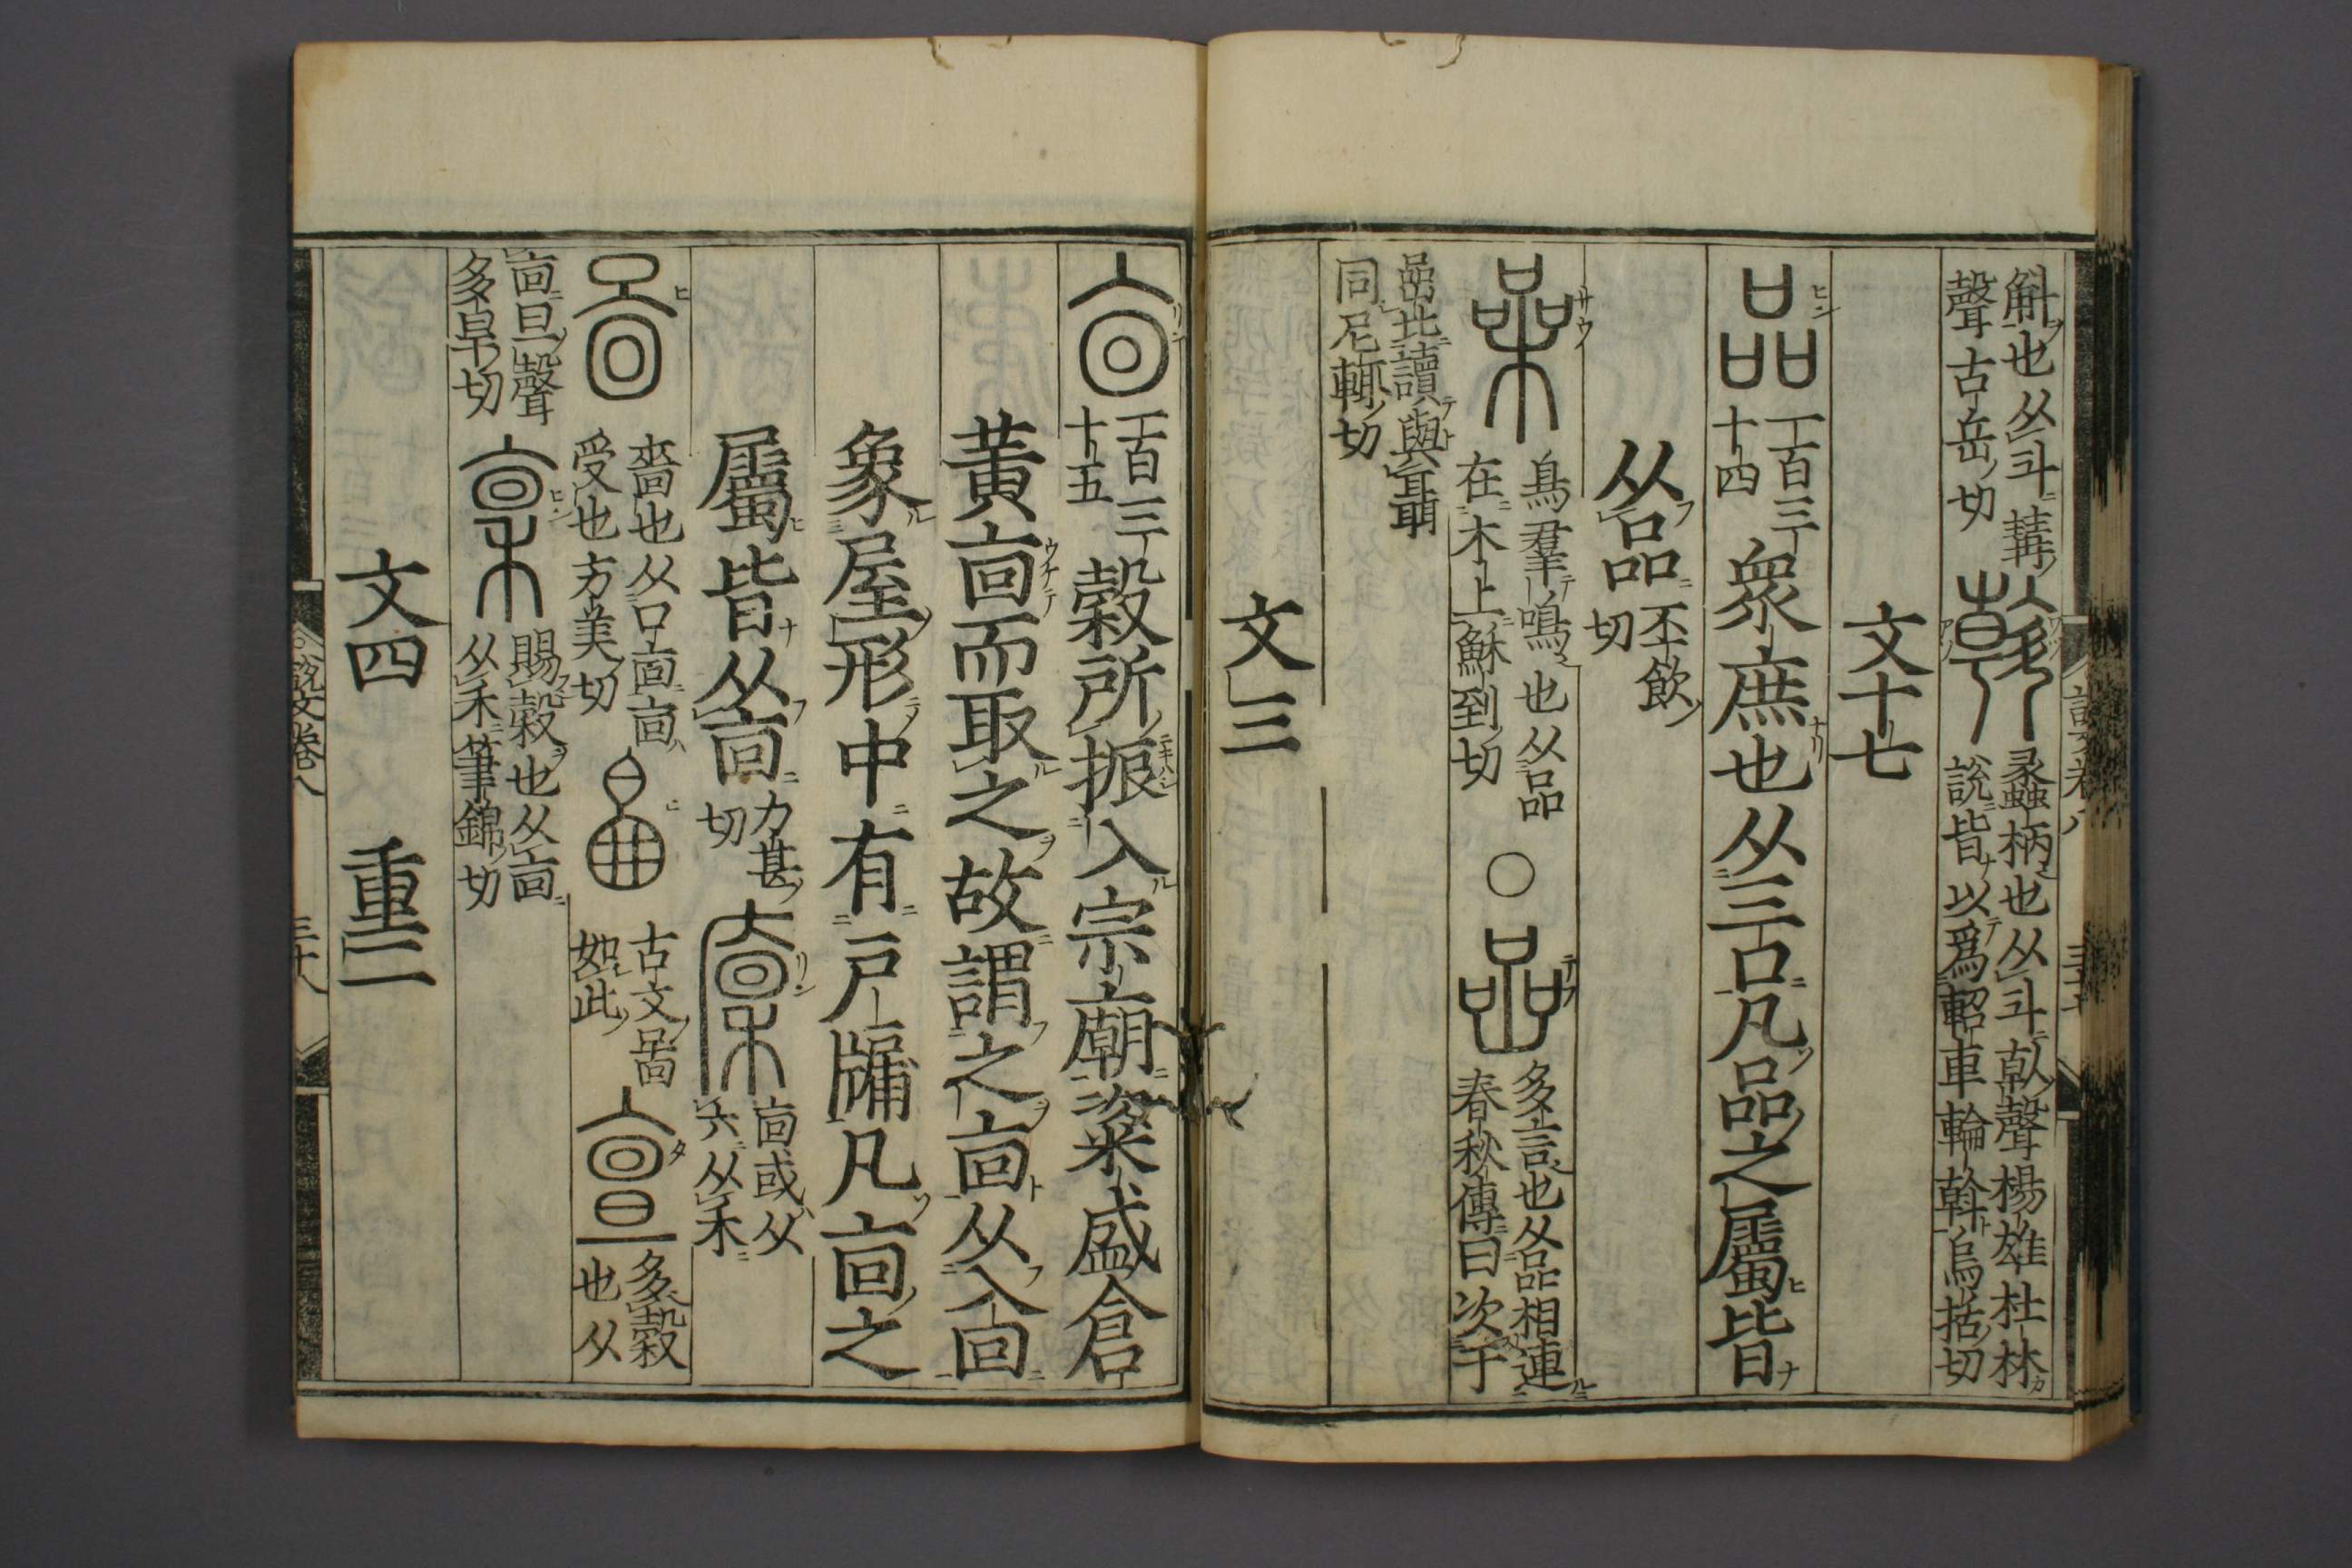 斛也从斗冓
聲古岳切
蠡柄也从斗倝聲楊雄杜林
說皆以爲軺車輪斡烏括切
文十七
一百三
十四
衆庶也从三口凡品之屬皆
从品
丕飲
切
鳥羣鳴也从品
在木上穌到切
○
多言也从品相連
春秋傳曰次于
嵒北讀與聶
同尼輒切
文三
一百三
十五
穀所振入宗廟粢盛倉
黃㐭而取之故謂之㐭从入回
象屋形中有戸牖凡㐭之
屬皆从㐭
力甚
切
㐭或从
广从禾
嗇也从口㐭㐭
受也方美切
古文啚
如此
多穀
也从
㐭旦聲
多旱切
賜穀也从㐭
从禾筆錦切
文四 重二
說文卷八
三十八